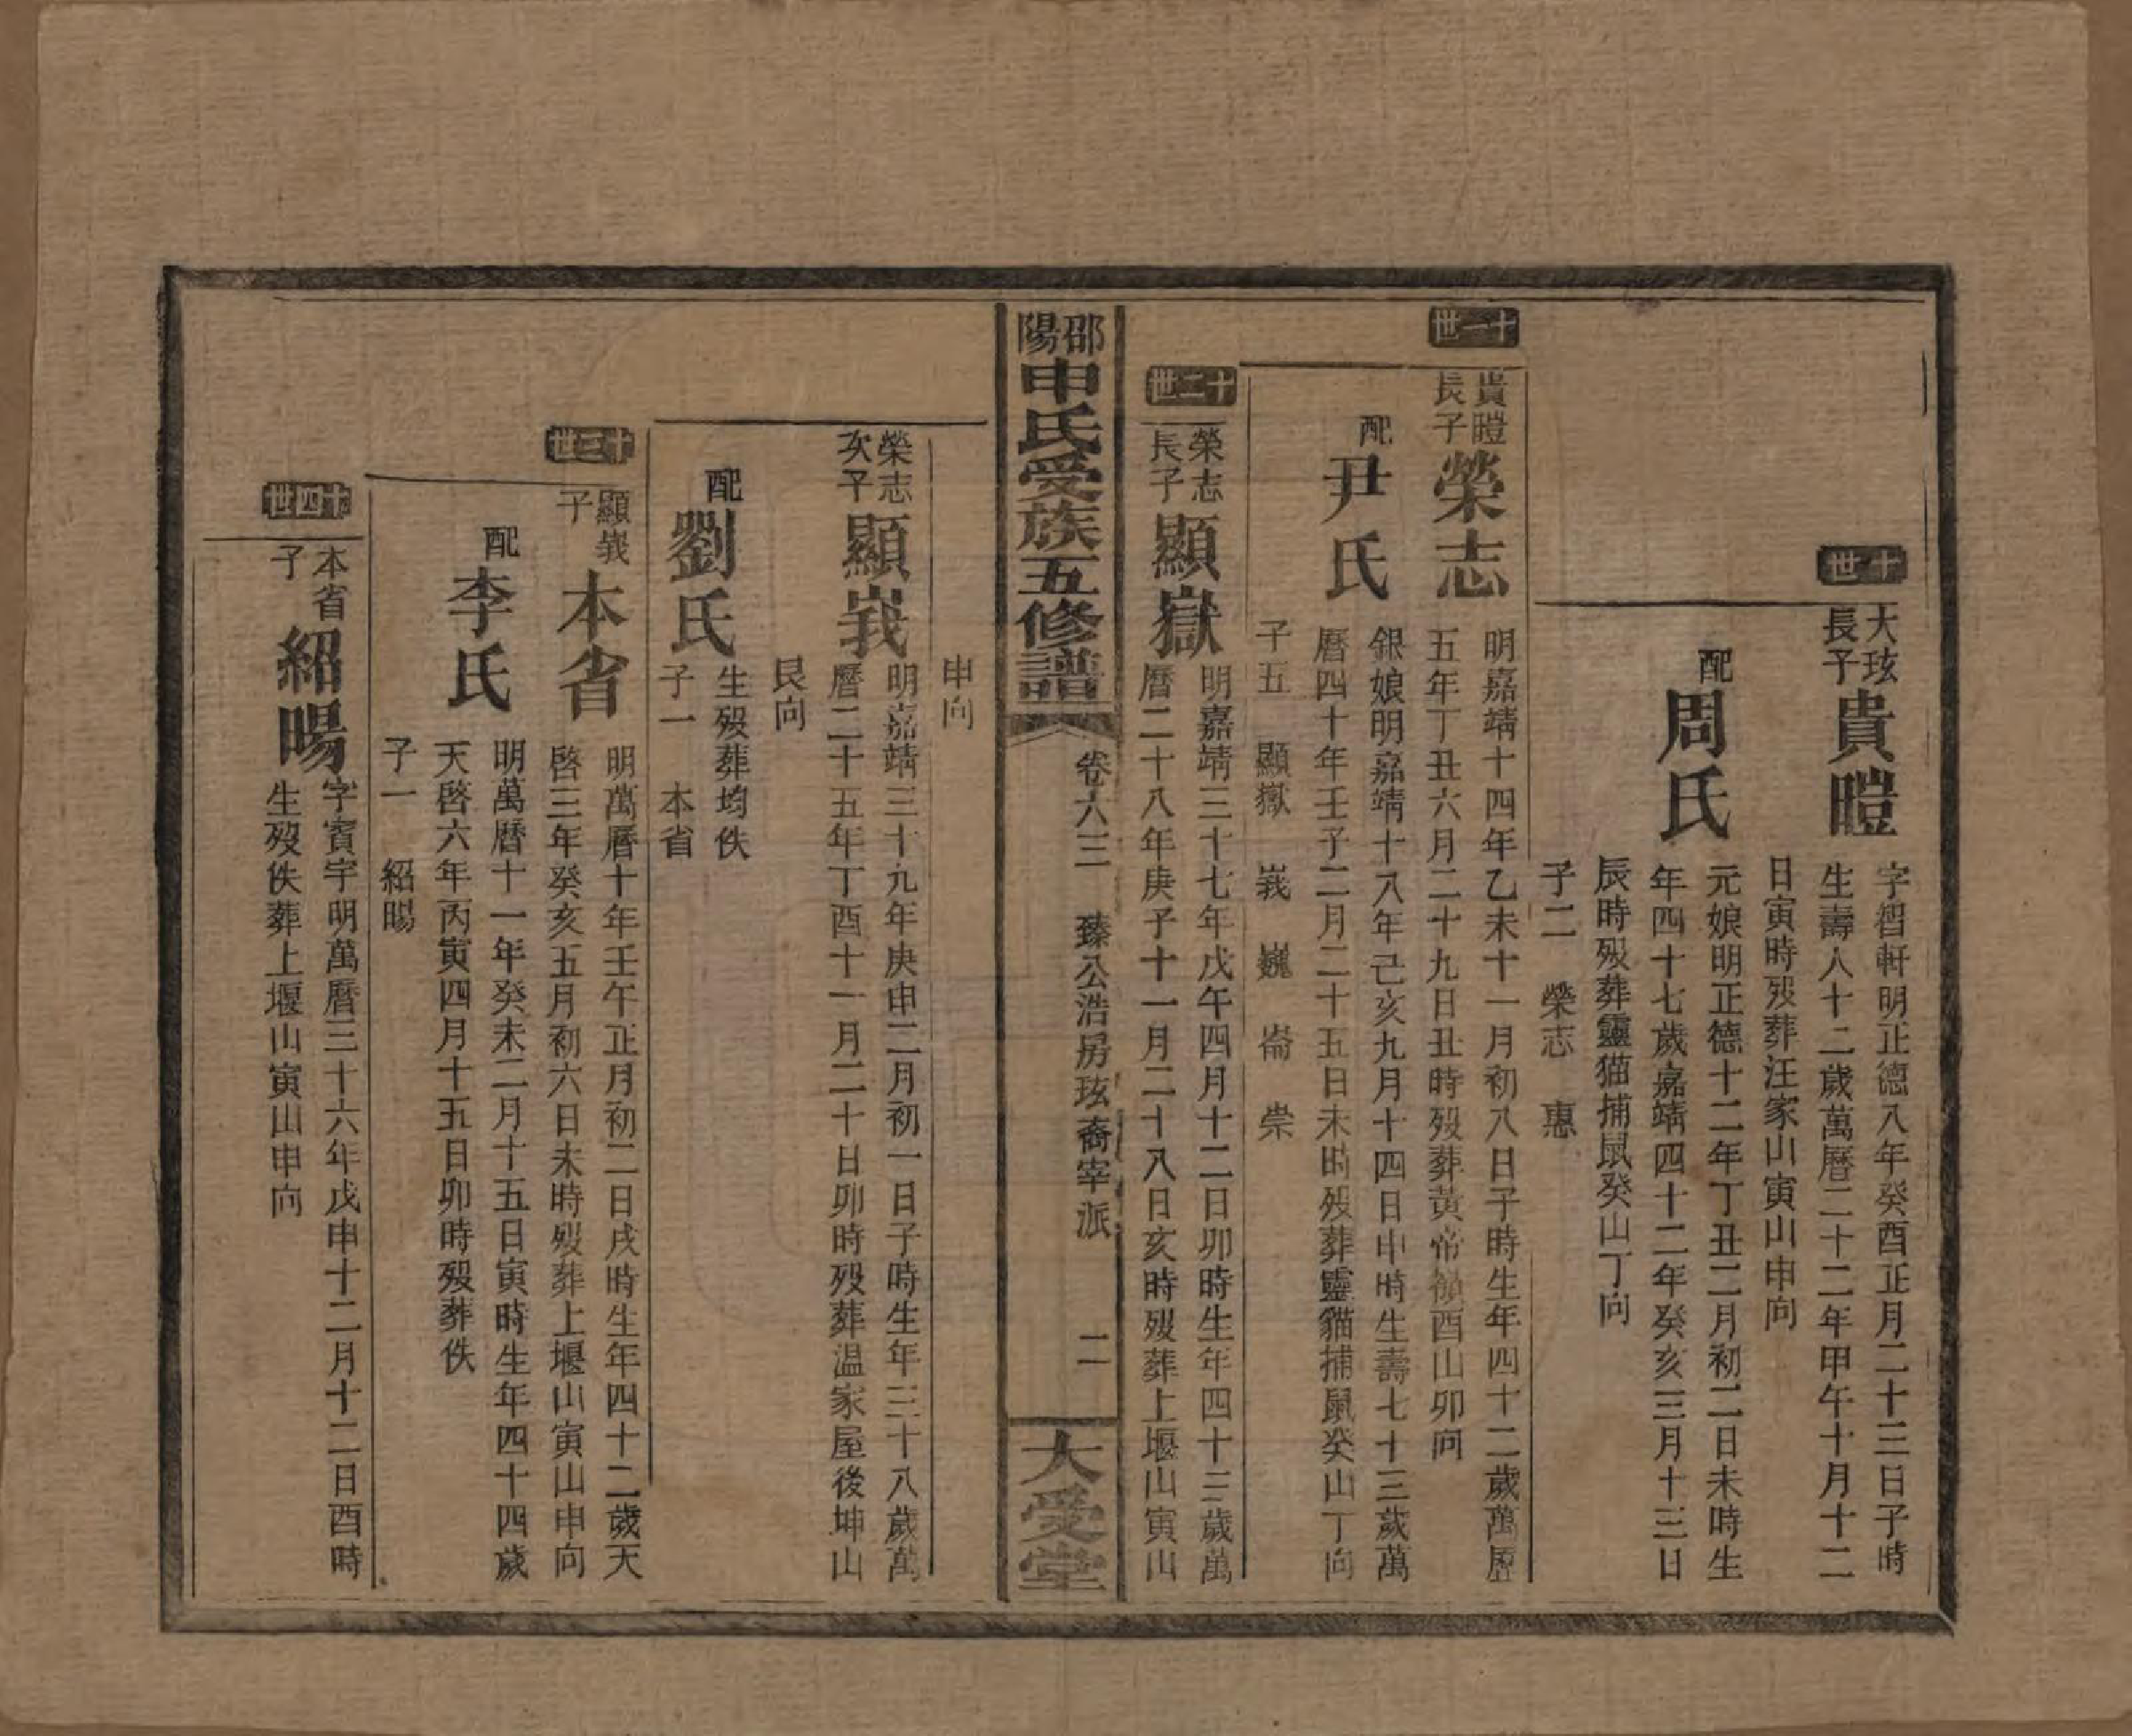 十世
大玹長子
貴暟
字智軒明正德八年癸酉正月二十三日子時
生壽八十二歲萬曆二十二年甲午十月十二
日寅時歿葬汪家山寅山申向
配
周氏
元娘明正德十二年丁丑二月初二日未時生
年四十七歲嘉靖四十二年癸亥三月十三日
辰時歿葬靈猫捕鼠癸山丁向
子二 榮志 惠
十一世
貴暟長子
榮志
明嘉靖十四年乙未十一月初八日子時生年四十二歲萬曆
五年丁丑六月二十九日丑時歿葬黃帝嶺酉山卯向
配
尹氏
銀娘明嘉靖十八年己亥九月十四日申時生壽七十三歲萬
曆四十年壬子二月二十五日未時歿葬靈貓捕鼠癸山丁向
子五 顯嶽 峩 巍 崙 崇
十二世
榮志長子
顯嶽
明嘉靖三十七年戊午四月十二日卯時生年四十三歲萬
曆二十八年庚子十一月二十八日亥時歿葬上堰山寅山
邵陽申氏受族五修譜
卷六三 臻公浩房玹裔宰派 二
大受堂
申向
榮志次子
顯峩
明嘉靖三十九年庚申二月初一日子時生年三十八歲萬
曆二十五年丁酉十一月二十日卯時歿葬温家屋後坤山
艮向
配
劉氏
生歿葬均佚
子一 本省
十三世
顯峩子
本省
明萬曆十年壬午正月初二日戌時生年四十二歲天
啓三年癸亥五月初六日未時歿葬上堰山寅山申向
配
李氏
明萬曆十一年癸未二月十五日寅時生年四十四歲
天啓六年丙寅四月十五日卯時歿葬佚
子一 紹暘
十四世
本省子
紹暘
字賓宇明萬曆三十六年戊申十二月十二日酉時
生歿佚葬上堰山寅山申向